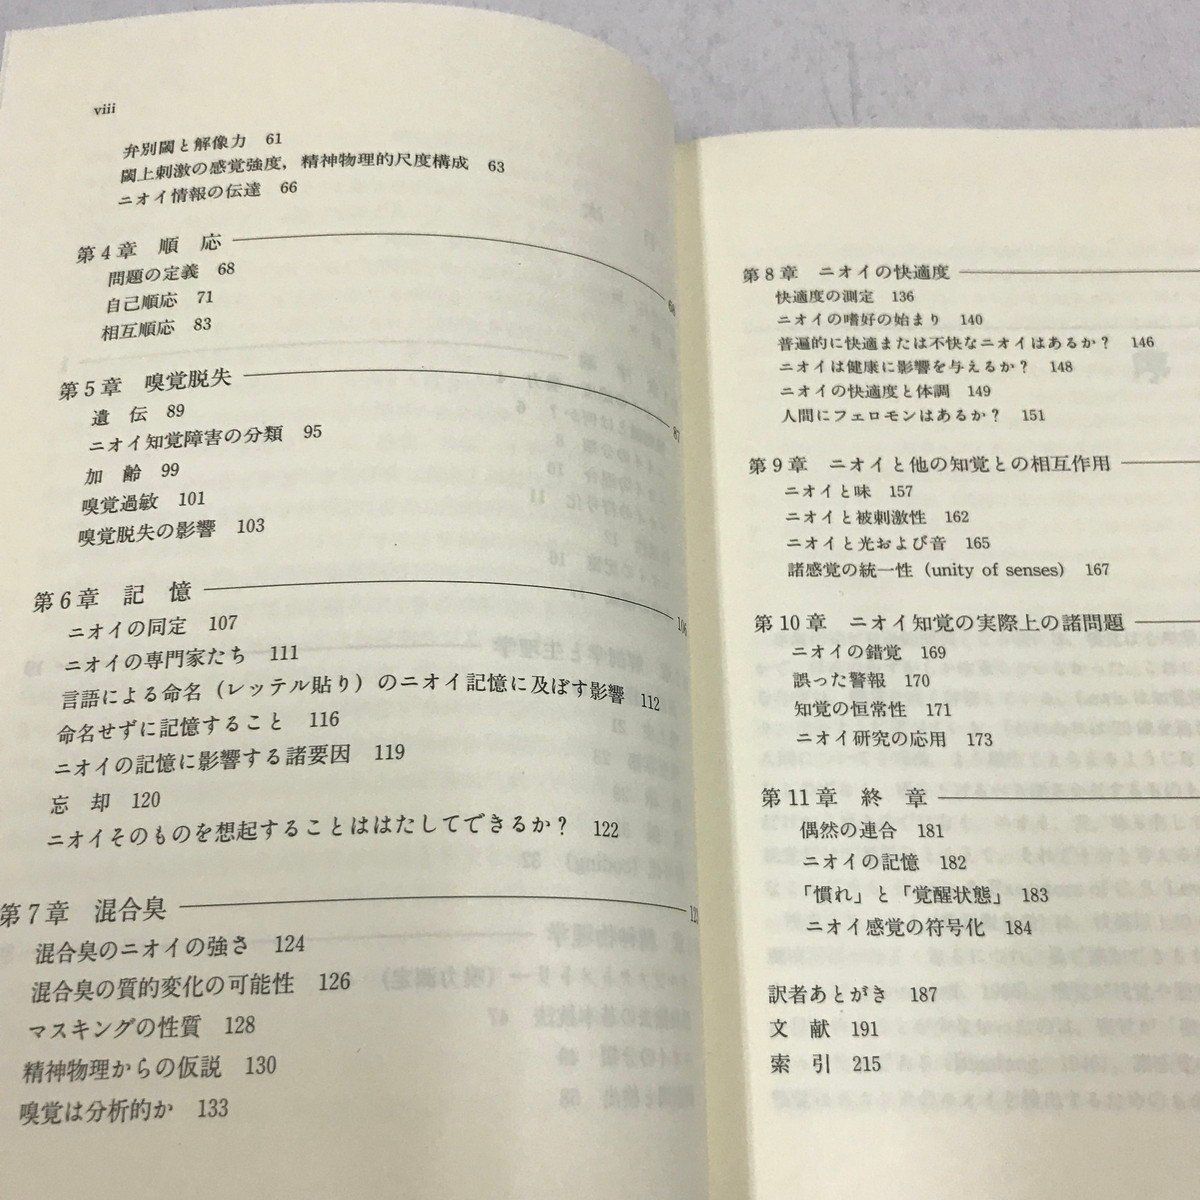 viii
弁別閾と解像力 61
閾上刺激の感覚強度，精神物理的尺度構成 63
ニオイ情報の伝達 66
第4章 順 応 68
問題の定義 68
自己順応 71
相互順応 83
第5章 嗅覚脱失 87
遺 伝 89
ニオイ知覚障害の分類 95
加 齢 99
嗅覚過敏 101
嗅覚脱失の影響 103
第6章 記 憶 106
ニオイの同定 107
ニオイの専門家たち 111
言語による命名（レッテル貼り）のニオイ記憶に及ぼす影響 112
命名せずに記憶すること 116
ニオイの記憶に影響する諸要因 119
忘 却 120
ニオイそのものを想起することははたしてできるか？ 122
第7章 混合臭
混合臭のニオイの強さ 124
混合臭の質的変化の可能性 126
マスキングの性質 128
精神物理からの仮説 130
嗅覚は分析的か 133
第8章 ニオイの快適度
快適度の測定 136
ニオイの嗜好の始まり 140
普遍的に快適または不快なニオイはあるか？ 146
ニオイは健康に影響を与えるか？ 148
ニオイの快適度と体調 149
人間にフェロモンはあるか？ 151
第9章 ニオイと他の知覚との相互作用
ニオイと味 157
ニオイと被刺激性 162
ニオイと光および音 165
諸感覚の統一性（unity of senses） 167
第10章 ニオイ知覚の実際上の諸問題
ニオイの錯覚 169
誤った警報 170
知覚の恒常性 171
ニオイ研究の応用 173
第11章 終 章
偶然の連合 181
ニオイの記憶 182
「慣れ」と「覚醒状態」 183
ニオイ感覚の符号化 184
訳者あとがき 187
文 献 191
索 引 215